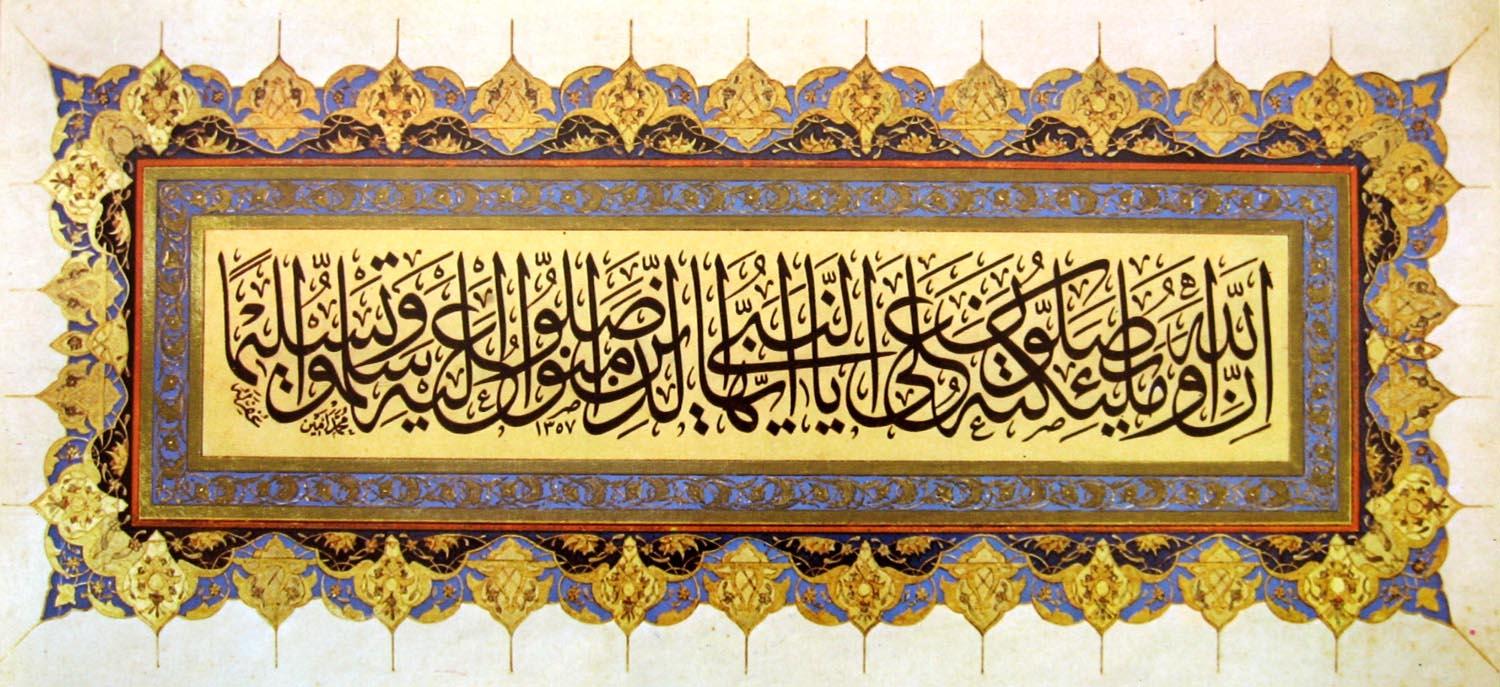 إن الله وملئكته يصلون على النبى يا أيها الذين آمنوا صلوا عليه وسلموا تسليما
محمد أمين
١٣٥٧